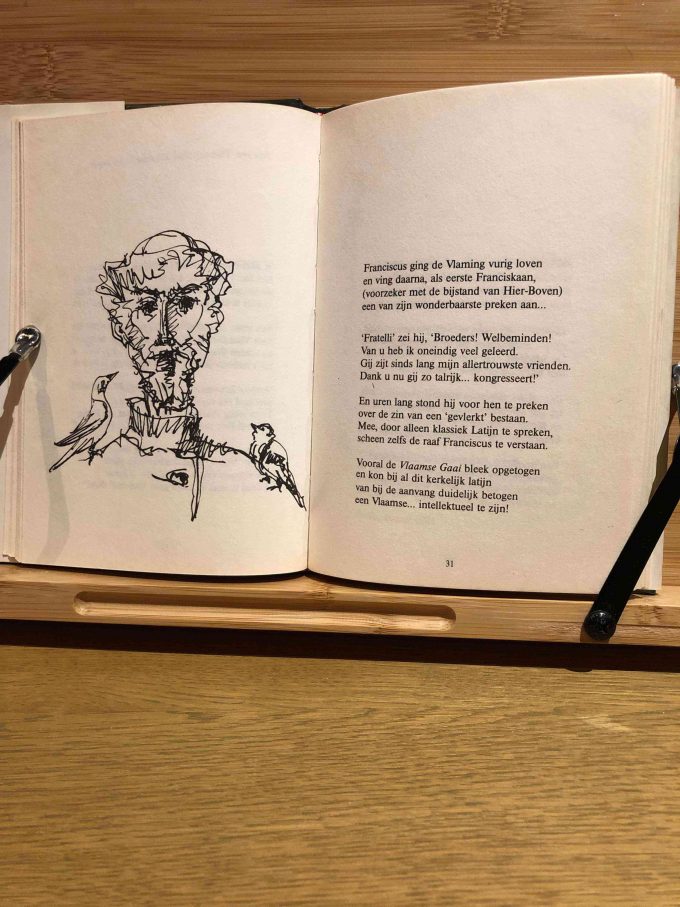 Franciscus ging de Vlaming vurig loven
en ving daarna, als eerste Franciskaan,
(voorzeker met de bijstand van Hier-Boven)
een van zijn wonderbaarste preken aan...
‘Fratelli’ zei hij, ‘Broeders! Welbeminden!
Van u heb ik oneindig veel geleerd.
Gij zijt sinds lang mijn allertrouwste vrienden.
Dank u nu gij zo talrijk... kongresseert!’
En uren lang stond hij voor hen te preken
over de zin van een ‘gevlerkt’ bestaan.
Mee, door alleen klassiek Latijn te spreken,
scheen zelfs de raaf Franciscus te verstaan.
Vooral de Vlaamse Gaai bleek opgetogen
en kon bij al dit kerkelijk latijn
van bij de aanvang duidelijk betogen
een Vlaamse... intellektueel te zijn!
31